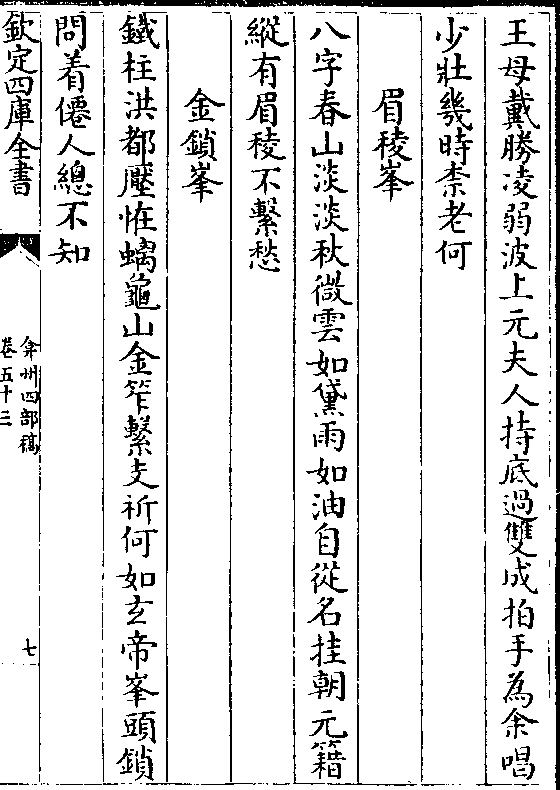 王母戴勝凌弱波上元夫人持底過雙成拍手為余唱
少壯幾時柰老何
眉稜峯
八字春山淡淡秋微雲如黛雨如油自從名挂朝元籍
縱有眉稜不繫愁
金鎖峯
鐵柱洪都壓恠螭龜山金笮繫支祈何如玄帝峯頭鎖
問着僊人總不知
欽定四庫全書
弇州四部稿
卷五十三
七